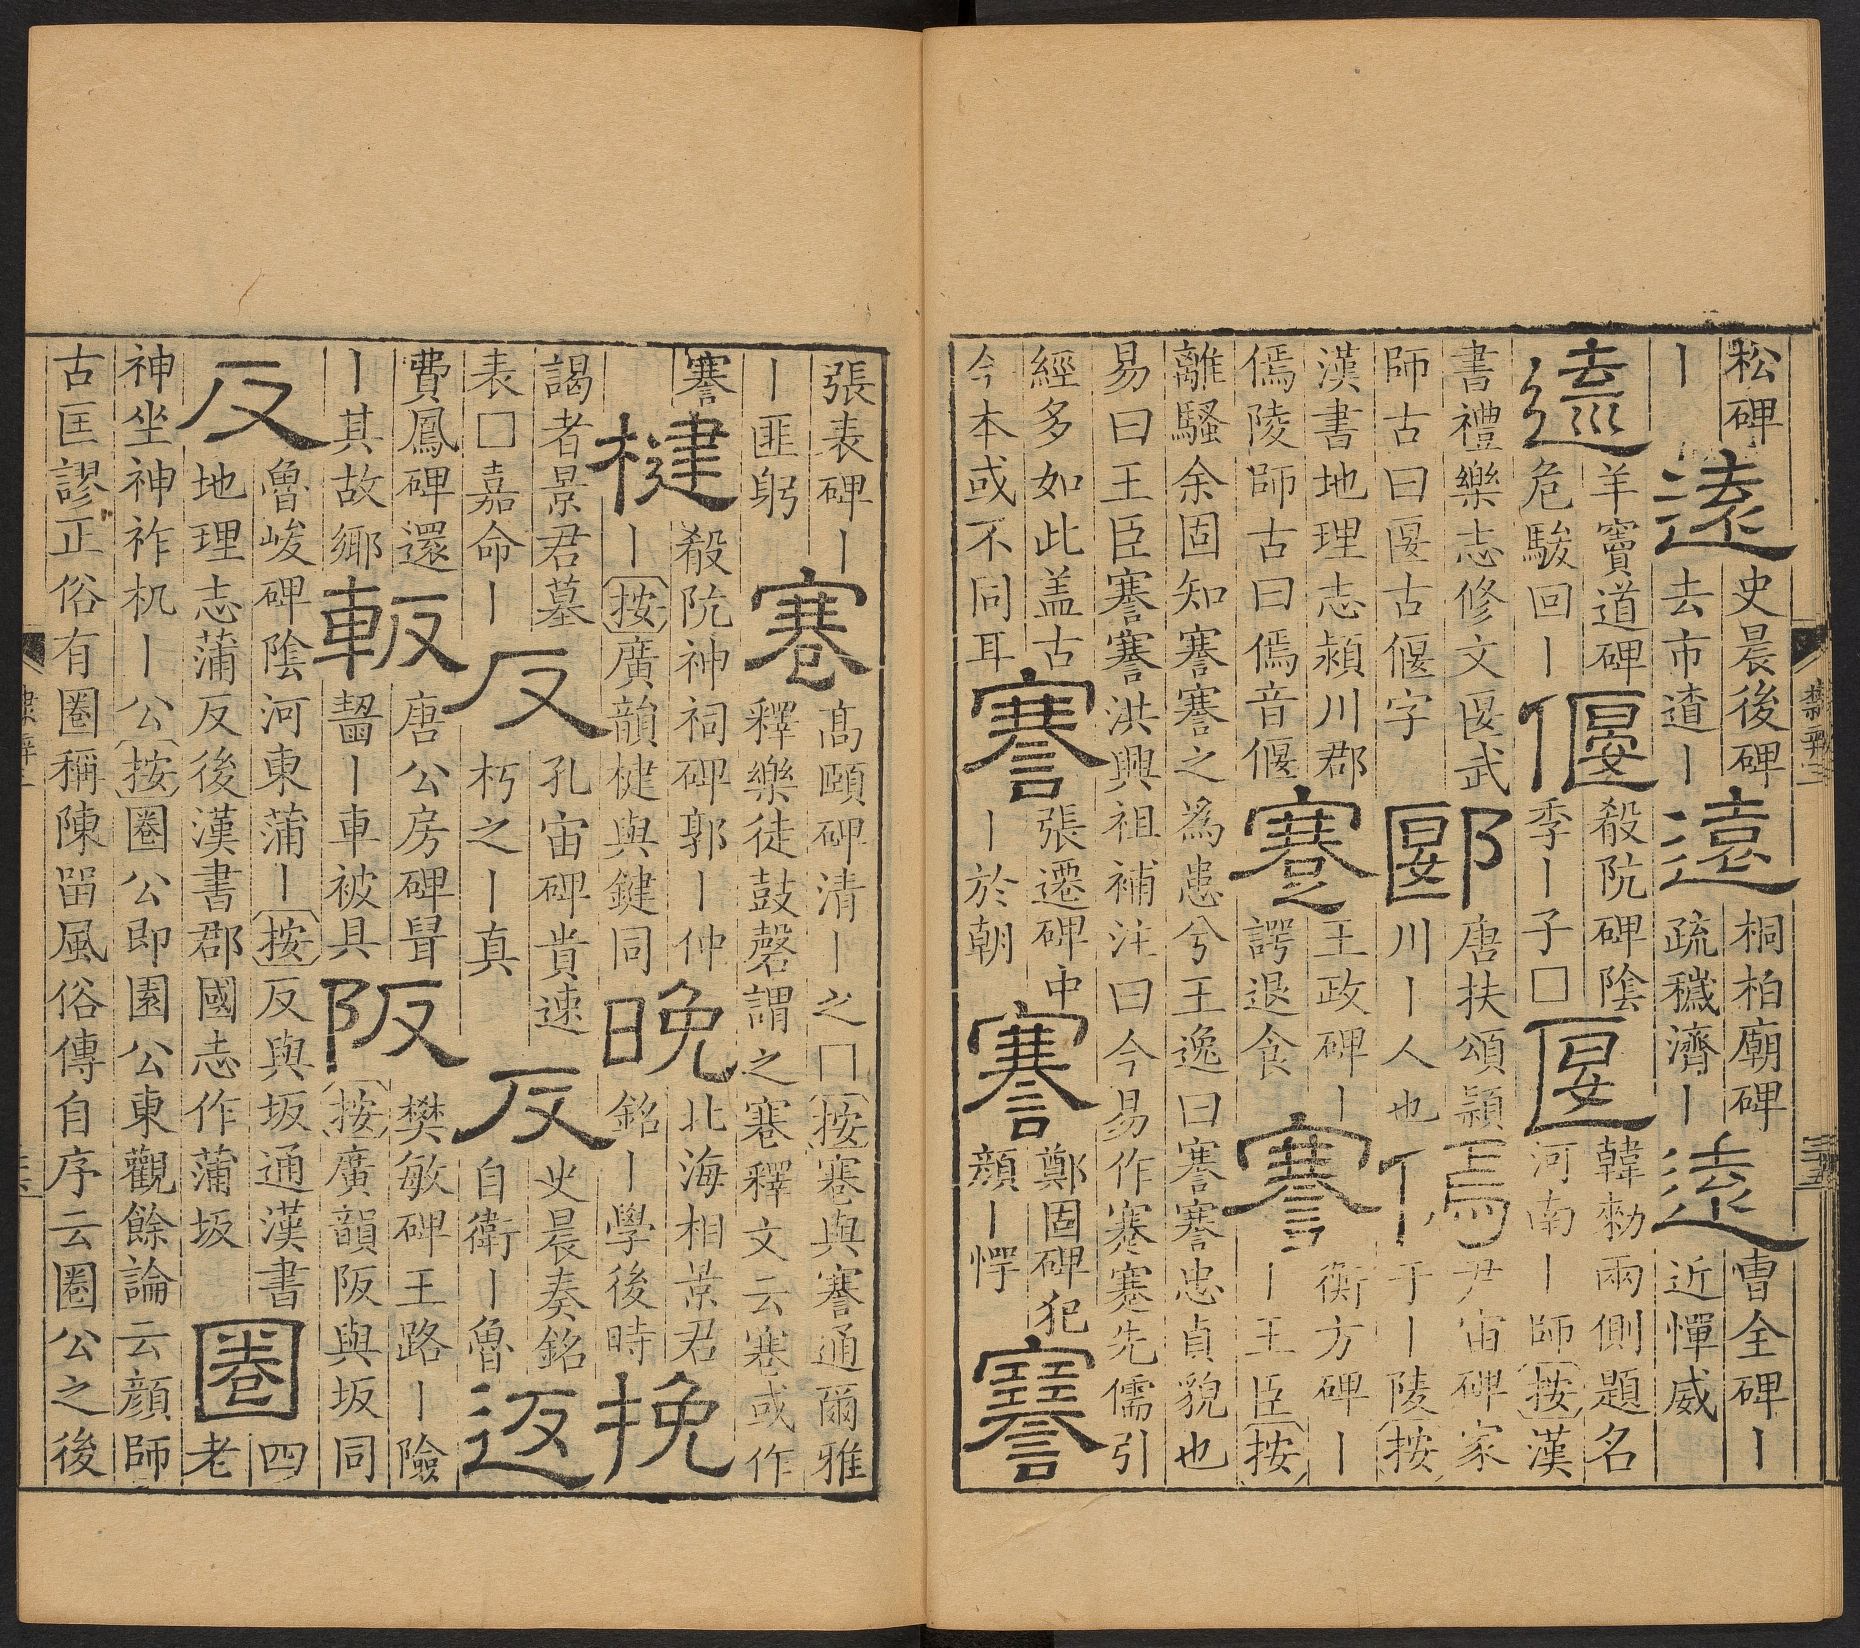 松碑
丨
遠
史晨後碑
去市遠丨
遠
桐柏廟碑
疏穢濟丨
遠
曹全碑丨
近憚威
遠
羊竇道碑
危駿回丨
偃
殽阬碑陰
季丨子□
匽
韓勑兩側題名
河南丨師按漢
書禮樂志修文匽武
師古曰匽古偃字
郾
唐扶頌潁
川丨人也
傿
尹宙碑家
于丨陵按
漢書地理志潁川郡
傿陵師古曰傿音偃
蹇
王政碑丨
諤退食
謇
衡方碑丨
丨王臣按
離騷余固知謇謇之為患兮王逸曰謇謇忠貞貌也
易曰王臣謇謇洪興祖補注曰今易作蹇蹇先儒引
經多如此盖古
今本或不同耳
謇
張遷碑中
丨於朝
謇
鄭固碑犯
顏丨愕
謇
張表碑丨
丨匪躬
寋
高頤碑清丨之□按寋與謇通爾雅
釋樂徒鼓磬謂之寋釋文云寋或作
謇
楗
殽阬神祠碑郭丨仲
丨按廣韻楗與鍵同
晚
北海相景君
銘丨學後時
挽
謁者景君墓
表□嘉命丨
反
孔宙碑貴速
朽之丨真
反
史晨奏銘
自衛丨魯
返
費鳳碑還
丨其故鄉
䡊
唐公房碑鼠
齧丨車被具
阪
樊敏碑王路丨險
按廣韻阪與坂同
反
魯峻碑陰河東蒲丨按反與坂通漢書
地理志蒲反後漢書郡國志作蒲坂
圈
四
老
神坐神祚机丨公按圈公即園公東觀餘論云顏師
古匡謬正俗有圈稱陳留風俗傳自序云圈公之後